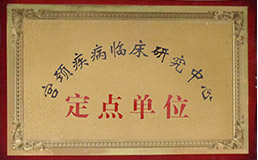 宫颈疾病临床研究中心
定点单位